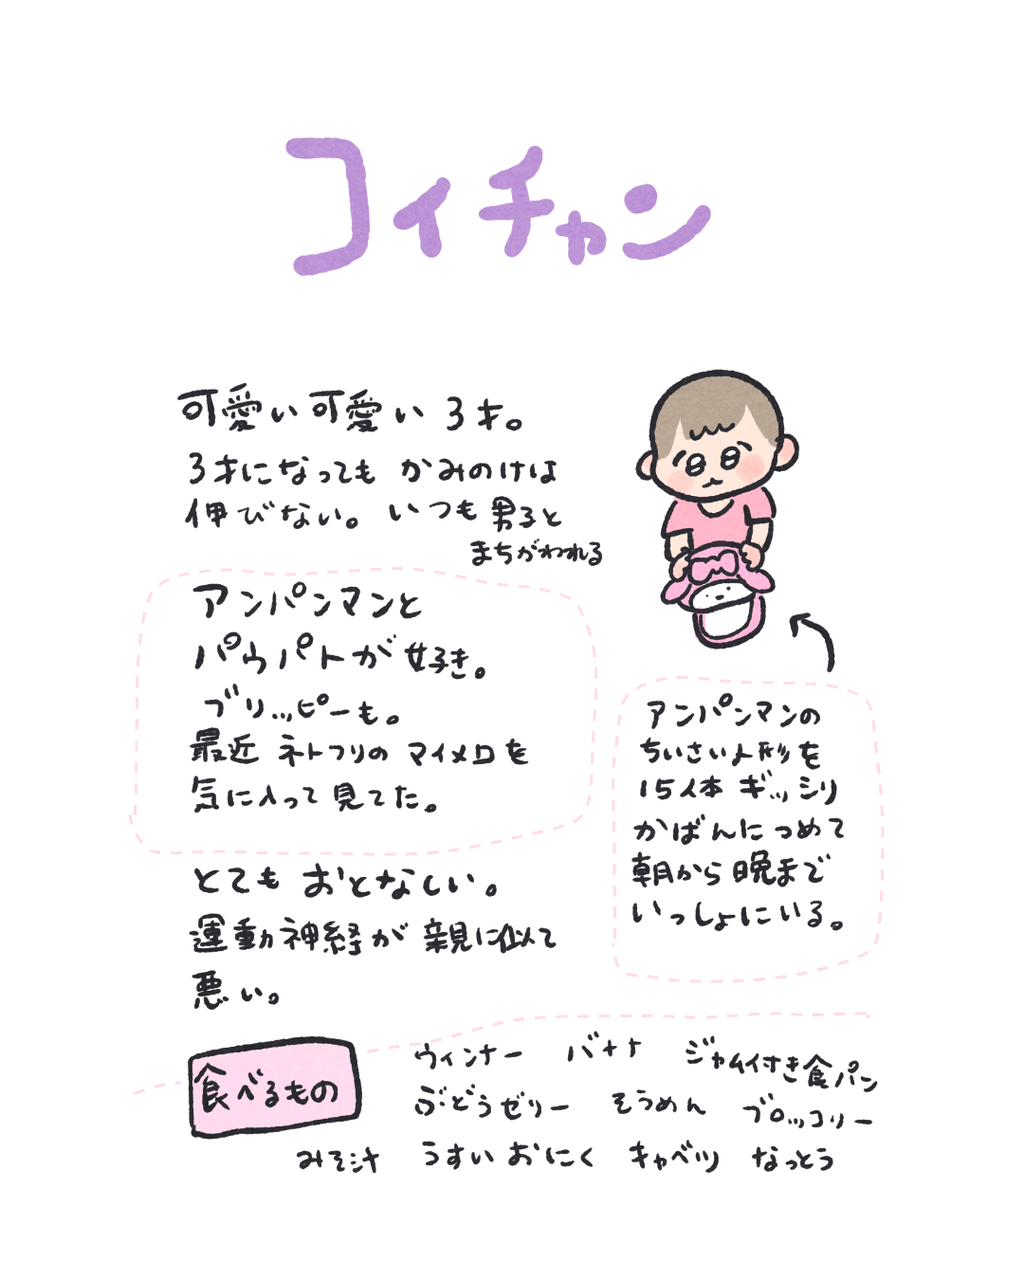 コイチャン
可愛い可愛い3才。
3才になっても かみのけは
伸びない。いつも男子と
まちがわれる
アンパンマンと
パウパトが好き。
ブリッピーも。
最近 ネトフリの マイメロを
気に入って見てた。
とても おとなしい。
運動神経が 親に似て
悪い。
アンパンマンの
ちいさい人形を
15体 ギッシリ
かばんにつめて
朝から晩まで
いっしょにいる。
食べるもの
ウィンナー バナナ ジャム付き食パン
ぶどうゼリー そうめん ブロッコリー
みそ汁 うすいおにく キャベツ なっとう